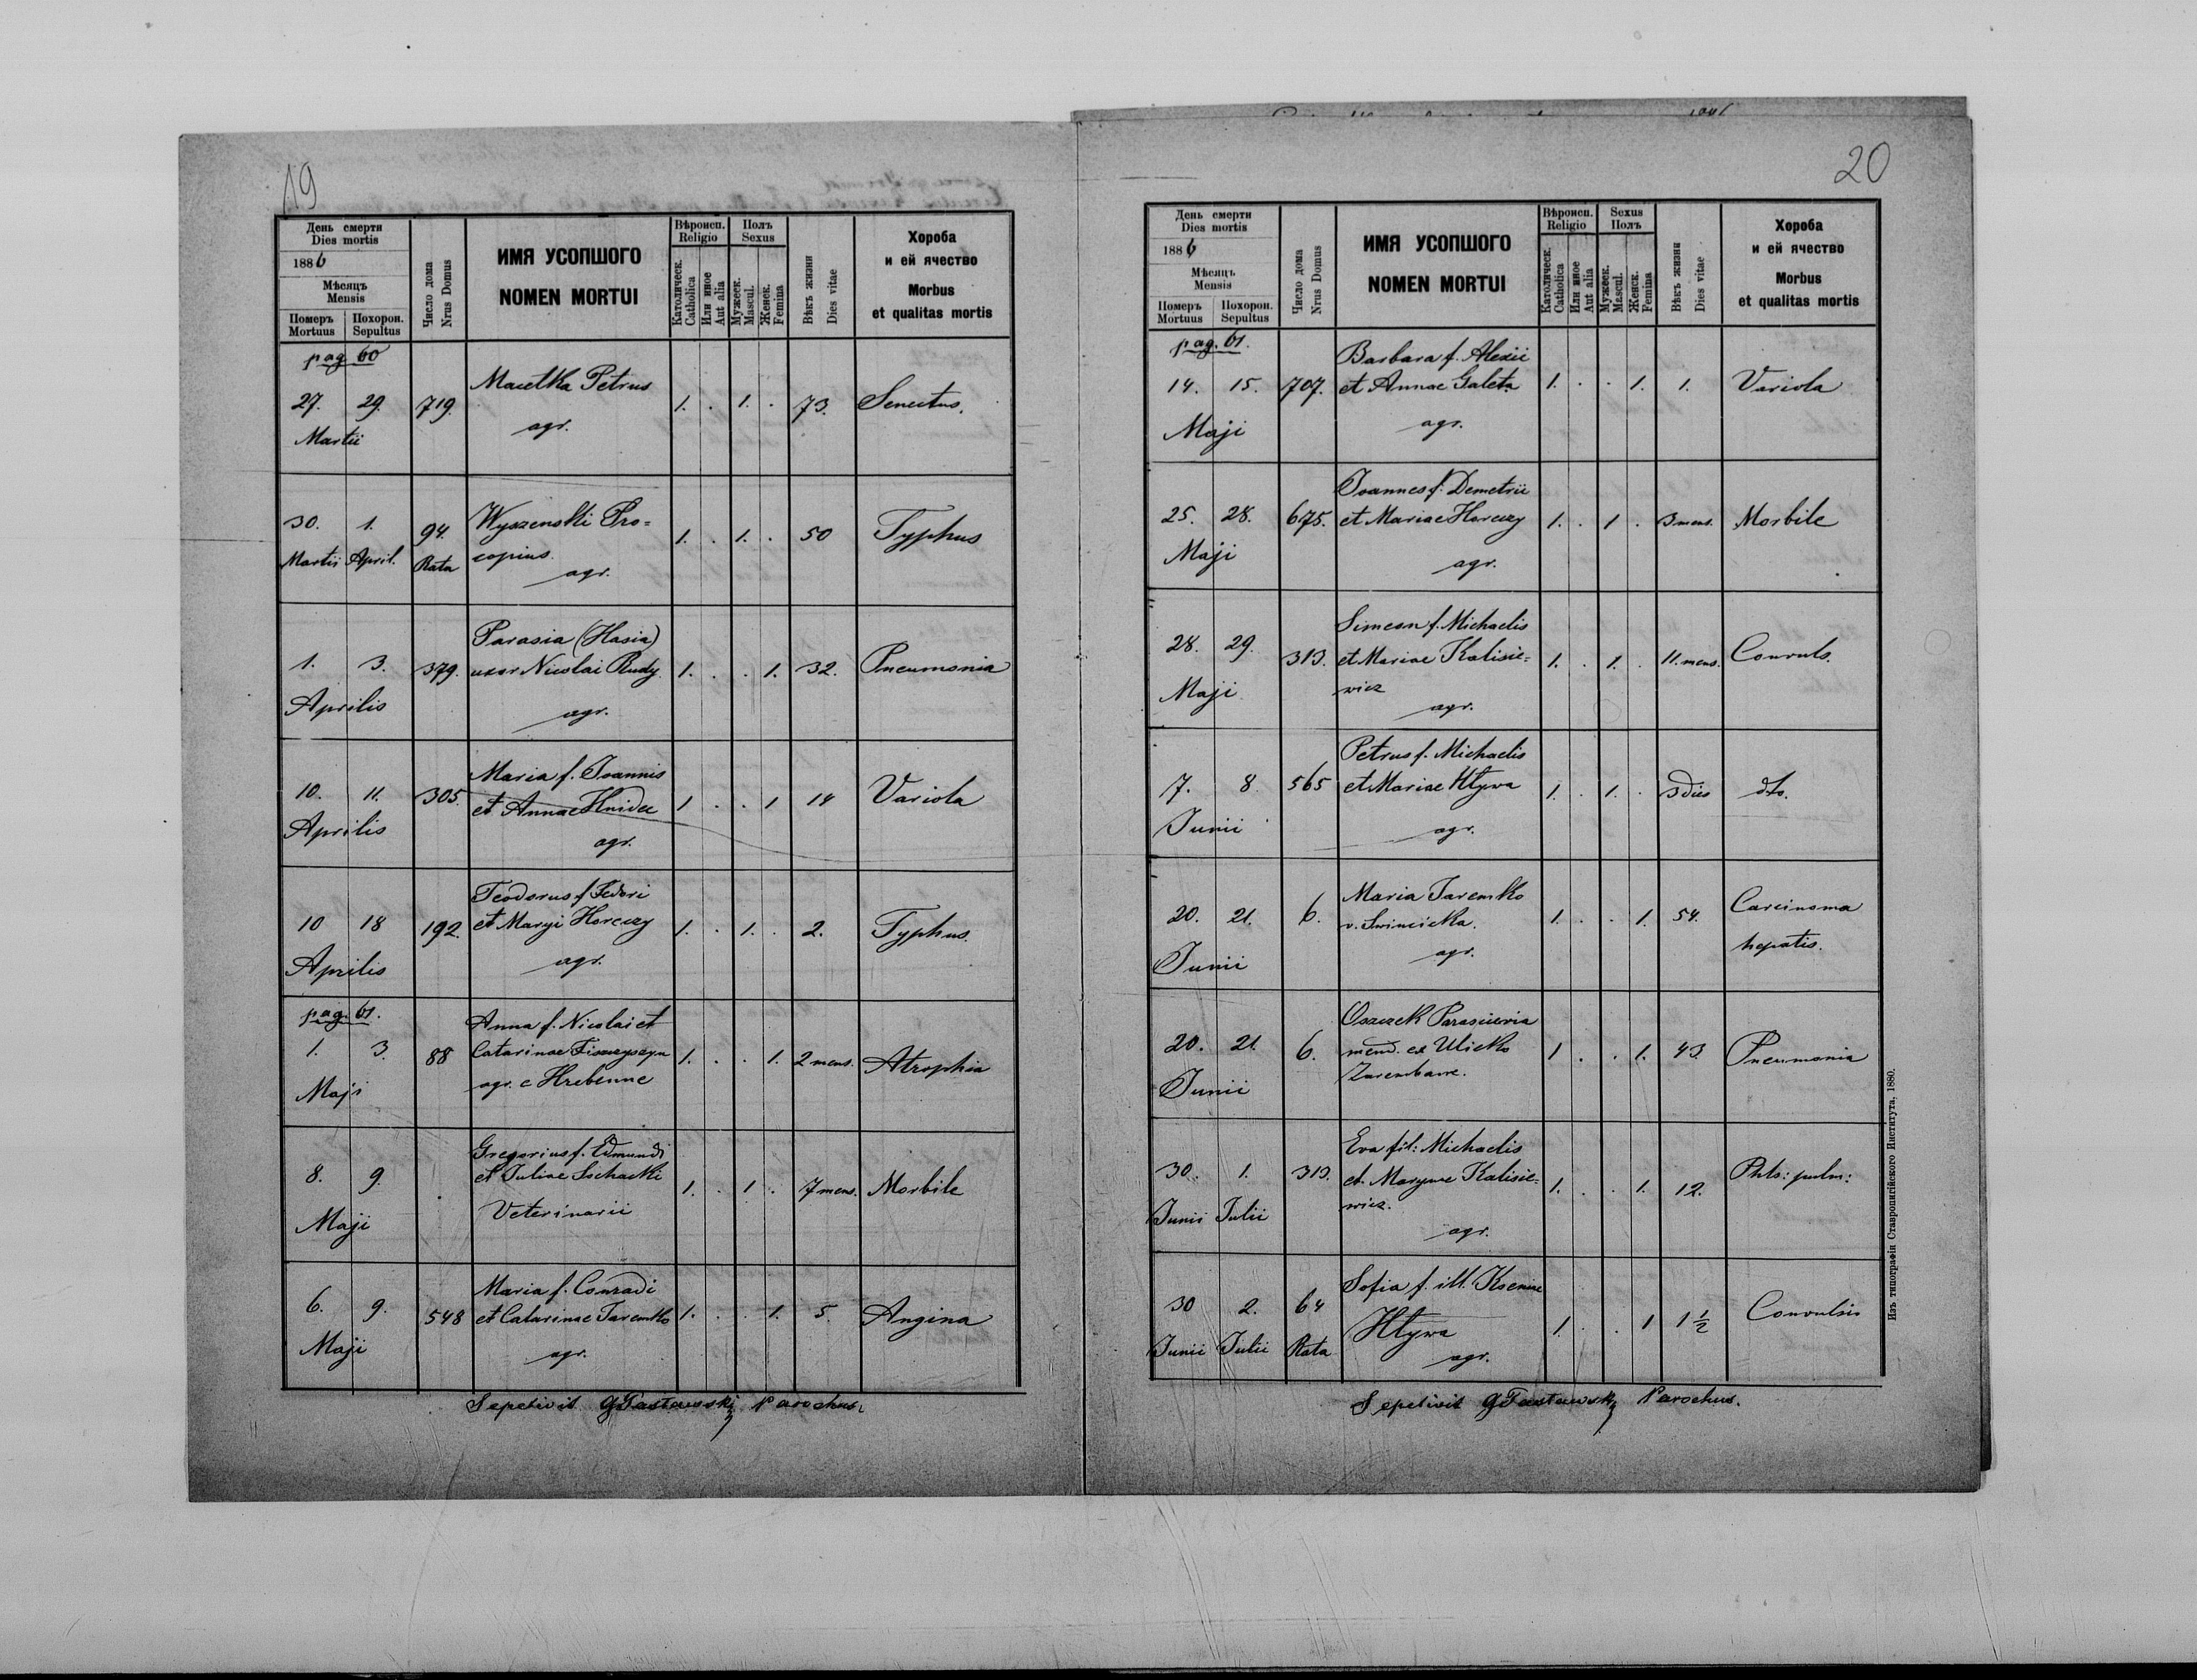 19
День смерти
Dies mortis
1886
Мѣсяцъ
Mensis
Померъ Похорон.
Mortuus Sepultus
Число дома
Nrus Domus
ИМЯ УСОПШОГО
NOMEN MORTUI
Вѣроисп.
Religio
Католическ.
Catholica
Или иное
Aut alia
Полъ
Sexus
Мужеск.
Mascul.
Женск.
Femina
Вѣкъ жизни
Dies vitae
Хороба
и ей ячество
Morbus
et qualitas mortis
pag. 60
27. 29. Martii 719. Macelka Petrus 1. . 1. . 73. Senectus.
agr.
30. 1. 94. Wyszenski Pro=
Martii April. Rata copius. 1. . 1. . 50 Typhus
agr.
Parasia (Hasia)
1. 3. 379. uxor Nicolai Rudy. 1. . . 1. 32. Pneumonia
Aprilis agr.
Maria f. Joannis
10. 11. 305. et Annae Hnidec 1 . . 1 14 Variola
Aprilis agr.
Teodorus f. Fedori
10 18 192. et Maryi Horeczy 1. . 1. . 2. Typhus.
Aprilis agr.
pag. 61.
Anna f. Nicolai et
1. 3. 88 Catarinae 1. . . 1. 2 mens. Atrophia
Maji agr. e Hrebenne
Gregorius f. Edmundi
8. 9. et Juliae 1. . 1. . 7 mens. Morbile
Maji Veterinarii
Maria f. Conradi
6. 9. 548 et Catarinae Jaremko 1. . . 1. 5. Angina
Maji agr.
Sepelivit Parochus.
20
День смерти
Dies mortis
1886
Мѣсяцъ
Mensis
Померъ Похорон.
Mortuus Sepultus
Число дома
Nrus Domus
ИМЯ УСОПШОГО
NOMEN MORTUI
Вѣроисп.
Religio
Католическ.
Catholica
Или иное
Aut alia
Sexus
Полъ
Мужеск.
Mascul.
Женск.
Femina
Вѣкъ жизни
Dies vitae
Хороба
и ей ячество
Morbus
et qualitas mortis
pag. 61.
Barbara f. Alexii
14. 15. 707. et Annae Galeta 1. . . 1. 1. Variola
Maji agr.
Joannes f. Demetrii
25. 28. 675. et Mariae Horeczy 1. . 1 . 3 mens. Morbile
Maji agr.
Simeon f. Michaelis
28. 29. 313. et Mariae Kalisie= 1. . 1. . 11. mens. Convuls.
Maji wicz
agr.
Petrus f. Michaelis
7. 8. 565 et Mariae Htywa 1. . 1. . 3 dies dto.
Junii agr.
Maria Jaremko
20. 21. 6. v. Swincicka. 1. . . 1. 54. Carcinoma
Junii agr. hepatis.
Oszczek Parascievia
20. 21. 6. mend. ex Ulicko 1 . . 1. 43. Pneumonia
Junii Zarembane.
Eva fil: Michaelis
30. 1. 313. et Maryae Kalisie= 1. . . 1. 12. Phts: pulm:
Junii Julii wicz.
agr.
Sofia f. ill. Kseniae
30 2. 64 Htywa 1. . . 1 1 1/2 Convulsio
Junii Julii Rata agr.
Sepelivit Parochus.
Изъ типографіи Ставропігійского Института, 1880.